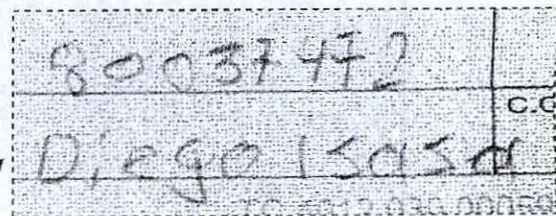 80037472
C.C
Diego Isasa